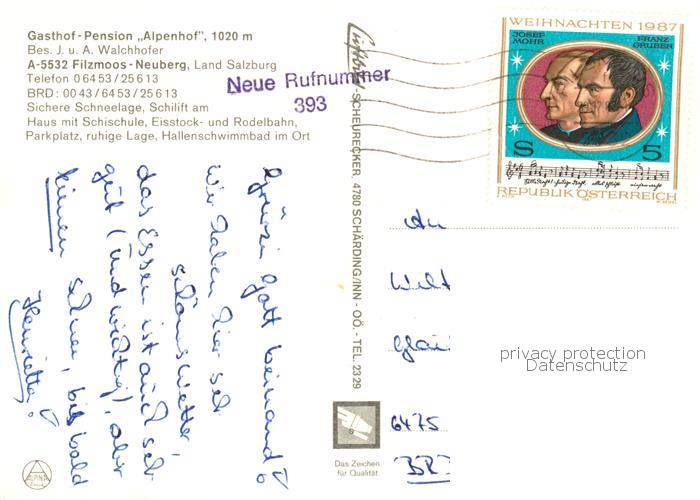 Gasthof-Pension „Alpenhof", 1020 m
Bes. J. u. A. Walchhofer
A-5532 Filzmoos-Neuberg, Land Salzburg
Telefon 06453/25613
BRD: 0043/6453/25613
Sichere Schneelage, Schilift am
Haus mit Schischule, Eisstock- und Rodelbahn,
Parkplatz, ruhige Lage, Hallenschwimmbad im Ort
Neue Rufnummer
393
Grüß Gott beinand!
wir haben hier sehr
schönes Wetter,
das Essen ist auch sehr
gut (und wichtig), aber
keinen Schnee, bis bald
Henriette!
SCHEURECKER, 4780 SCHÄRDING/INN - OÖ. - TEL. 2329
WEIHNACHTEN 1987
JOSEF MOHR
FRANZ GRUBER
S 5
REPUBLIK ÖSTERREICH
An
Welt
6475
BRD
privacy protection
Datenschutz
Das Zeichen
für Qualität
ALPINA